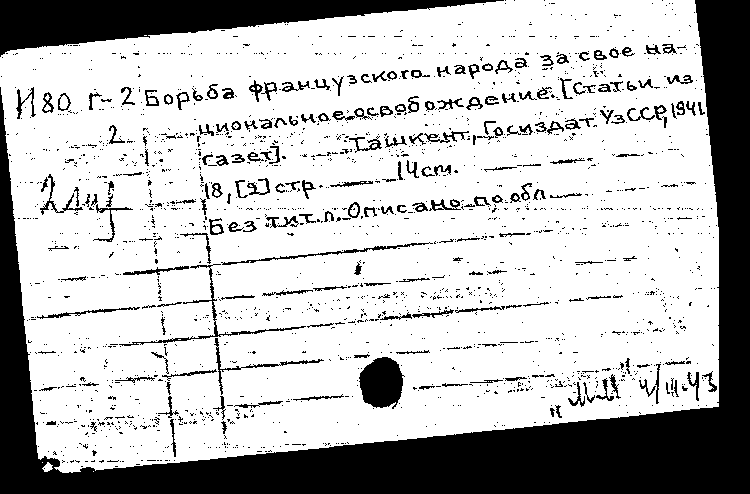 И80 г-2 Борьба французского народа за свое на-
2 циональное освобождение. [Статьи из
газет]. Ташкент, Госиздат УзССР, 1941
18, [2] стр. 14 см.
Без тит. л. Описано по обл.
4/III-43